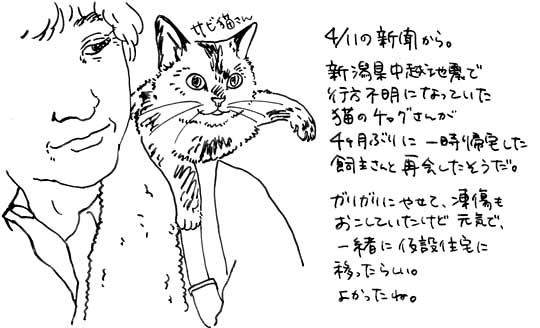 サビ猫さん
4/11の新聞から。
新潟県中越地震で
行方不明になっていた
猫のチャグさんが
4ヶ月ぶりに一時帰宅した
飼主さんと再会したそうだ。
ガリガリにやせて、凍傷も
おこしていたけど元気で、
一緒に仮設住宅に
移ったらしい。
よかったね。